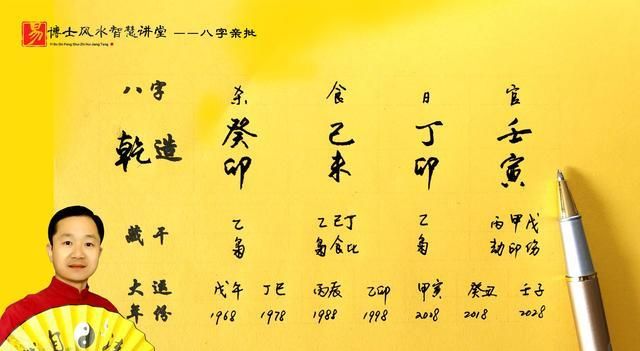 易 博士风水智慧讲堂 ——八字亲批
Yi Bo Shi Feng Shui Zhi Hui Jiang Tang
八字 杀 食 日 官
乾造 癸卯 己未 丁卯 壬寅
藏干 乙 乙己丁 乙 丙甲戊
枭 枭食比 枭 劫印伤
大运 戊午 丁巳 丙辰 乙卯 甲寅 癸丑 壬子
年份 1968 1978 1988 1998 2028 2018 2028